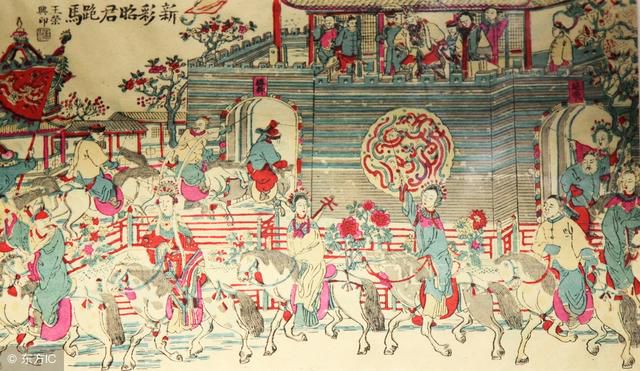 新彩昭君跑馬
王榮興印
© 东方IC